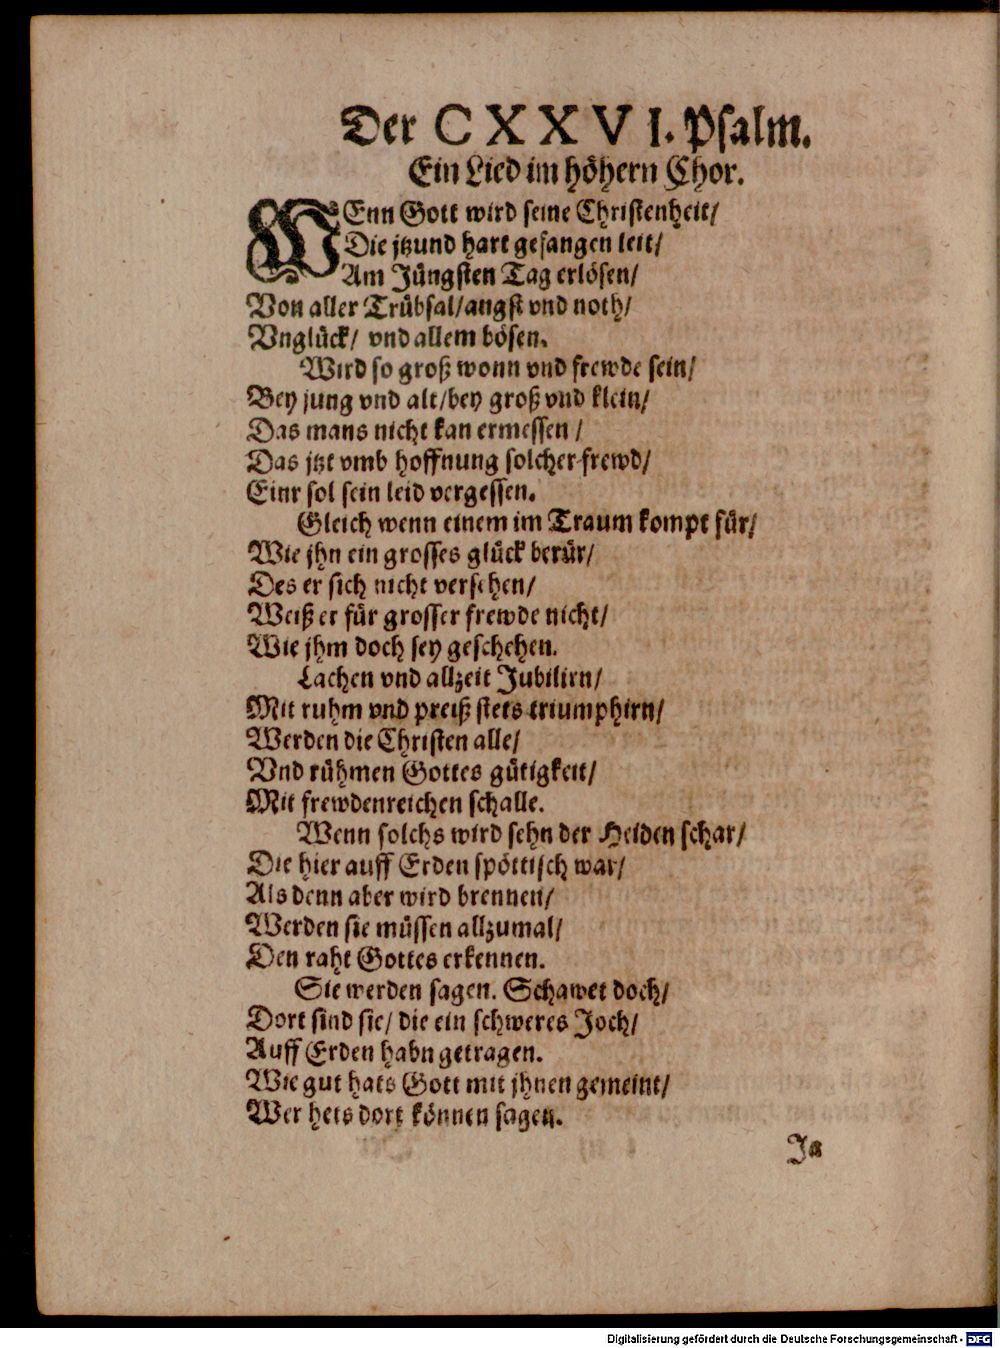 Der CXXVI. Psalm.
Ein Lied im höhern Chor.
WEnn Gott wird seine Christenheit/
Die jtzund hart gefangen leit/
Am Jüngsten Tag erlösen/
Von aller Trübsal/angst vnd noth/
Vnglück/ vnd allem bösen.
Wird so groß wonn vnd frewde sein/
Bey jung vnd alt/bey groß vnd klein/
Das mans nicht kan ermessen /
Das jtzt vmb hoffnung solcher frewd/
Einr sol sein leid vergessen.
Gleich wenn einem im Traum kompt für/
Wie jhn ein grosses glück berür/
Des er sich nicht versehen/
Weiß er für grosser frewde nicht/
Wie jhm doch sey geschehen.
Lachen vnd allzeit Jubilirn/
Mit ruhm vnd preiß stets triumphirn/
Werden die Christen alle/
Vnd rühmen Gottes gütigkeit/
Mit frewdenreichen schalle.
Wenn solchs wird sehn der Heiden schar/
Die hier auff Erden spöttisch war/
Als denn aber wird brennen/
Werden sie müssen allzumal/
Den raht Gottes erkennen.
Sie werden sagen. Schawet doch/
Dort sind sie/ die ein schweres Joch/
Auff Erden habn getragen.
Wie gut hats Gott mit jhnen gemeint/
Wer hets dort können sagen.
Ja
Digitalisierung gefördert durch die Deutsche Forschungsgemeinschaft - DFG